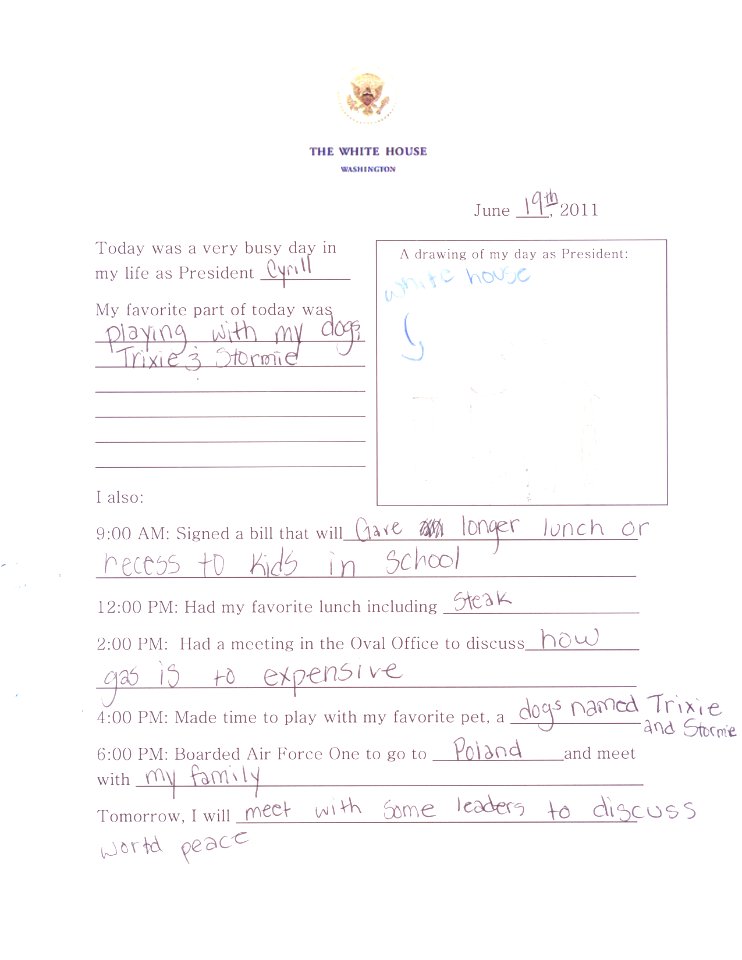 THE WHITE HOUSE
WASHINGTON
June 19th, 2011
Today was a very busy day in
my life as President Cyrill
My favorite part of today was
playing with my dogs
Trixie & Stormie
A drawing of my day as President:
white house
I also:
9:00 AM: Signed a bill that will Gave longer lunch or
recess to kids in school
12:00 PM: Had my favorite lunch including Steak
2:00 PM: Had a meeting in the Oval Office to discuss how
gas is to expensive
4:00 PM: Made time to play with my favorite pet, a dogs named Trixie
and Stormie
6:00 PM: Boarded Air Force One to go to Poland and meet
with my family
Tomorrow, I will meet with some leaders to discuss
world peace